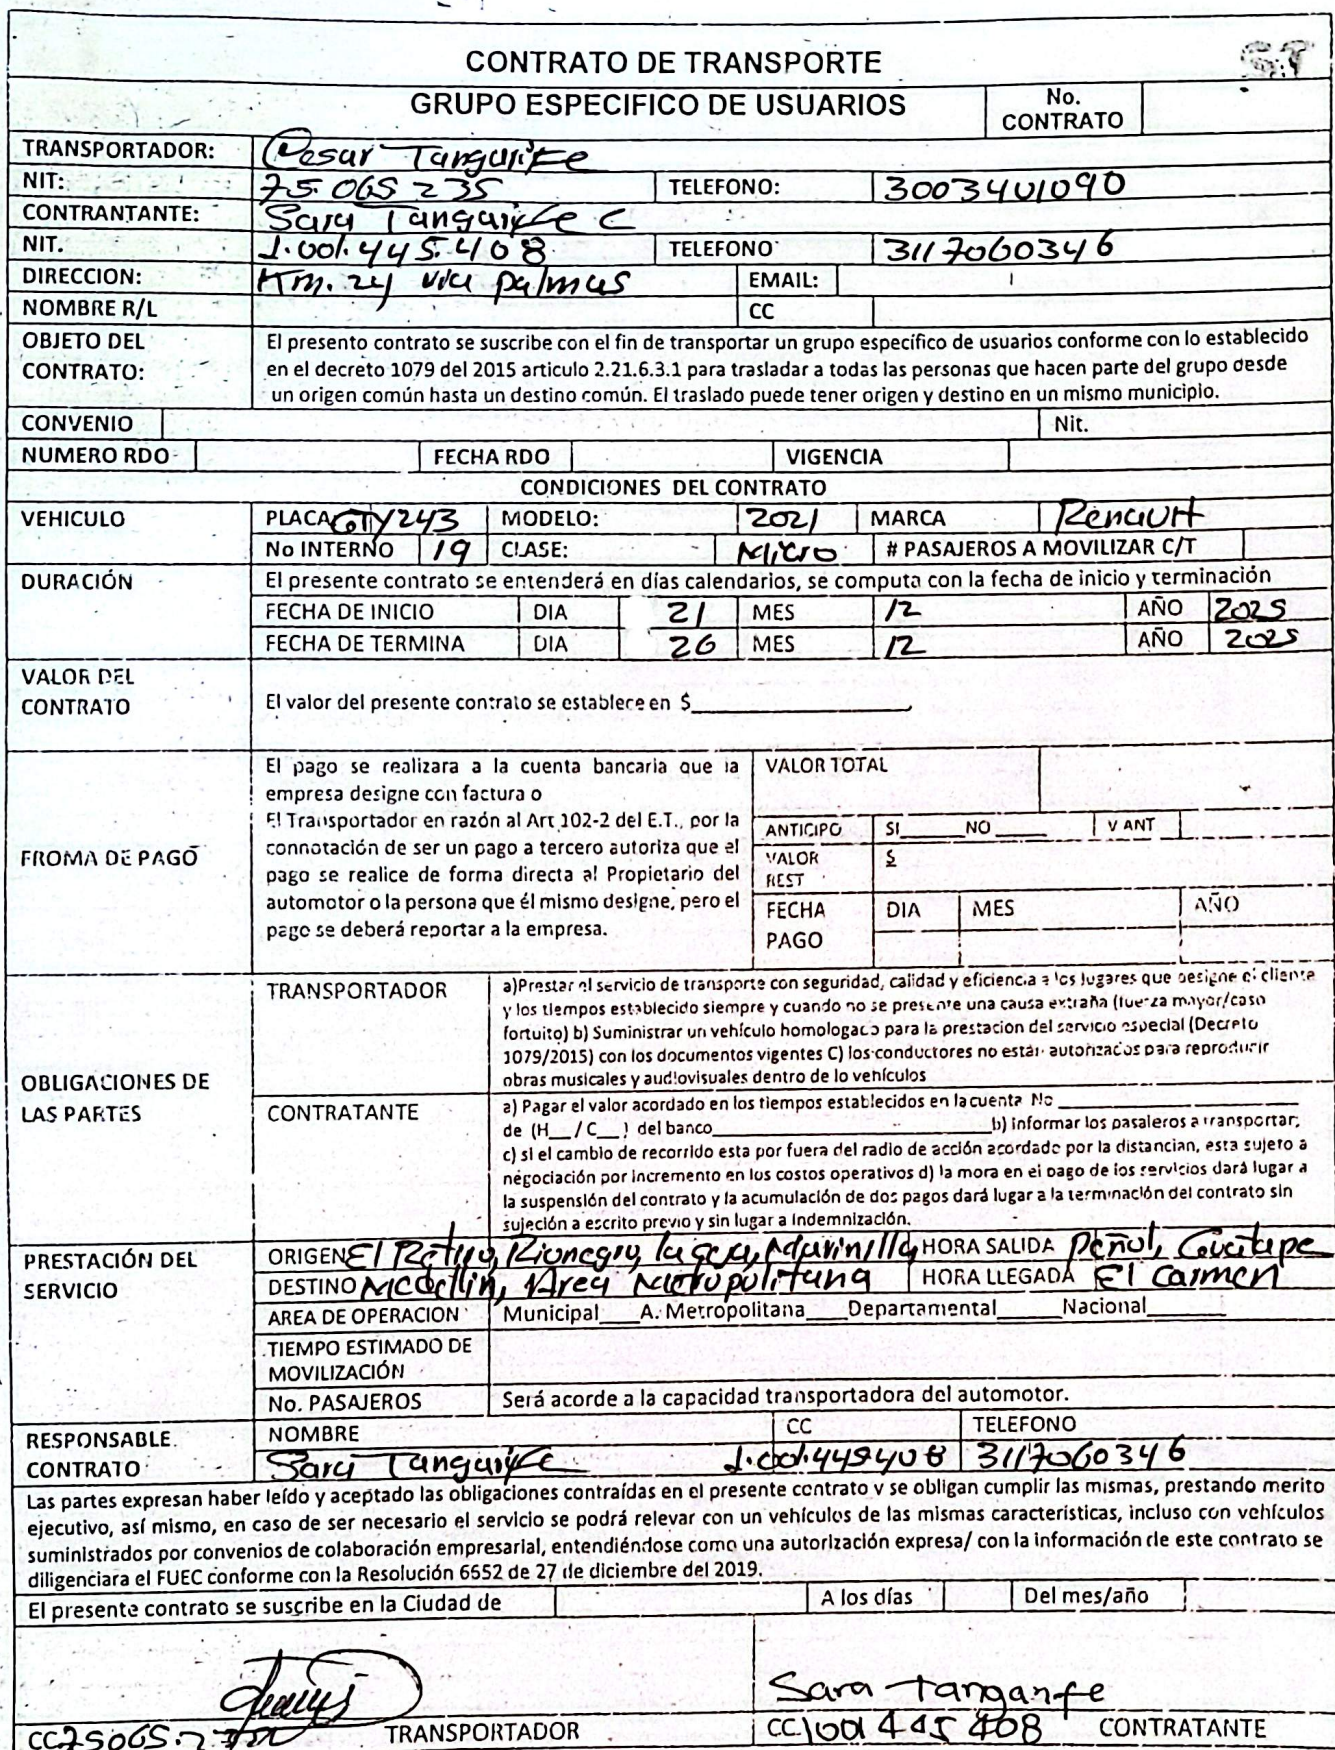 CONTRATO DE TRANSPORTE
GRUPO ESPECIFICO DE USUARIOS
No. CONTRATO
TRANSPORTADOR: Cesar Tangarife
NIT: 75.065 235 TELEFONO: 3003401090
CONTRANTANTE: Sara Tangarife C
NIT. 1.001.445.408 TELEFONO 3117060346
DIRECCION: Km. 24 via palmas EMAIL:
NOMBRE R/L CC
OBJETO DEL CONTRATO:
El presento contrato se suscribe con el fin de transportar un grupo específico de usuarios conforme con lo establecido
en el decreto 1079 del 2015 articulo 2.21.6.3.1 para trasladar a todas las personas que hacen parte del grupo desde
un origen común hasta un destino común. El traslado puede tener origen y destino en un mismo municipio.
CONVENIO Nit.
NUMERO RDO FECHA RDO VIGENCIA
CONDICIONES DEL CONTRATO
VEHICULO PLACA GTY243 MODELO: 2021 MARCA Renault
No INTERNO 19 CLASE: Micro # PASAJEROS A MOVILIZAR C/T
DURACIÓN El presente contrato se entenderá en días calendarios, se computa con la fecha de inicio y terminación
FECHA DE INICIO DIA 21 MES 12 AÑO 2025
FECHA DE TERMINA DIA 26 MES 12 AÑO 2025
VALOR DEL CONTRATO
El valor del presente contrato se establece en $
FROMA DE PAGO
El pago se realizara a la cuenta bancaria que la
empresa designe con factura o
El Transportador en razón al Art 102-2 del E.T., por la
connotación de ser un pago a tercero autoriza que el
pago se realice de forma directa al Propietario del
automotor o la persona que él mismo designe, pero el
pago se deberá reportar a la empresa.
VALOR TOTAL
ANTICIPO SI____NO____ V ANT
VALOR REST $
FECHA PAGO DIA MES AÑO
OBLIGACIONES DE LAS PARTES
TRANSPORTADOR
a)Prestar el servicio de transporte con seguridad, calidad y eficiencia a los lugares que designe el cliente
y los tiempos establecido siempre y cuando no se presente una causa extraña (fuerza mayor/caso
fortuito) b) Suministrar un vehículo homologado para la prestacion del servicio especial (Decreto
1079/2015) con los documentos vigentes C) los conductores no están autorizados para reproducir
obras musicales y audiovisuales dentro de lo vehículos
CONTRATANTE
a) Pagar el valor acordado en los tiempos establecidos en la cuenta No
de (H__/C__) del banco____b) informar los pasaleros a transportar;
c) si el cambio de recorrido esta por fuera del radio de acción acordado por la distancian, esta sujeto a
negociación por incremento en los costos operativos d) la mora en el pago de los servicios dará lugar a
la suspensión del contrato y la acumulación de dos pagos dará lugar a la terminación del contrato sin
sujeción a escrito previo y sin lugar a indemnización.
PRESTACIÓN DEL SERVICIO
ORIGEN El Retiro, Rionegro, la ceja, Marinilla HORA SALIDA Peñol, Guatape
DESTINO Medellin, Area Metropolitana HORA LLEGADA El Carmen
AREA DE OPERACION Municipal____A. Metropolitana____Departamental____Nacional____
TIEMPO ESTIMADO DE MOVILIZACIÓN
No. PASAJEROS Será acorde a la capacidad transportadora del automotor.
RESPONSABLE CONTRATO
NOMBRE CC TELEFONO
Sara Tangarife 1.001.445408 3117060346
Las partes expresan haber leído y aceptado las obligaciones contraídas en el presente contrato y se obligan cumplir las mismas, prestando merito
ejecutivo, así mismo, en caso de ser necesario el servicio se podrá relevar con un vehículos de las mismas características, incluso con vehículos
suministrados por convenios de colaboración empresarial, entendiéndose como una autorización expresa/ con la información de este contrato se
diligenciara el FUEC conforme con la Resolución 6652 de 27 de diciembre del 2019.
El presente contrato se suscribe en la Ciudad de A los días Del mes/año
Sara Tangarife
CC TRANSPORTADOR CC 1001 445 408 CONTRATANTE